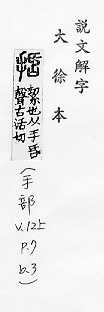 說文解字
大徐本
絜也从手昏
聲古活切
(手部 V.12上 P.7 b.3)